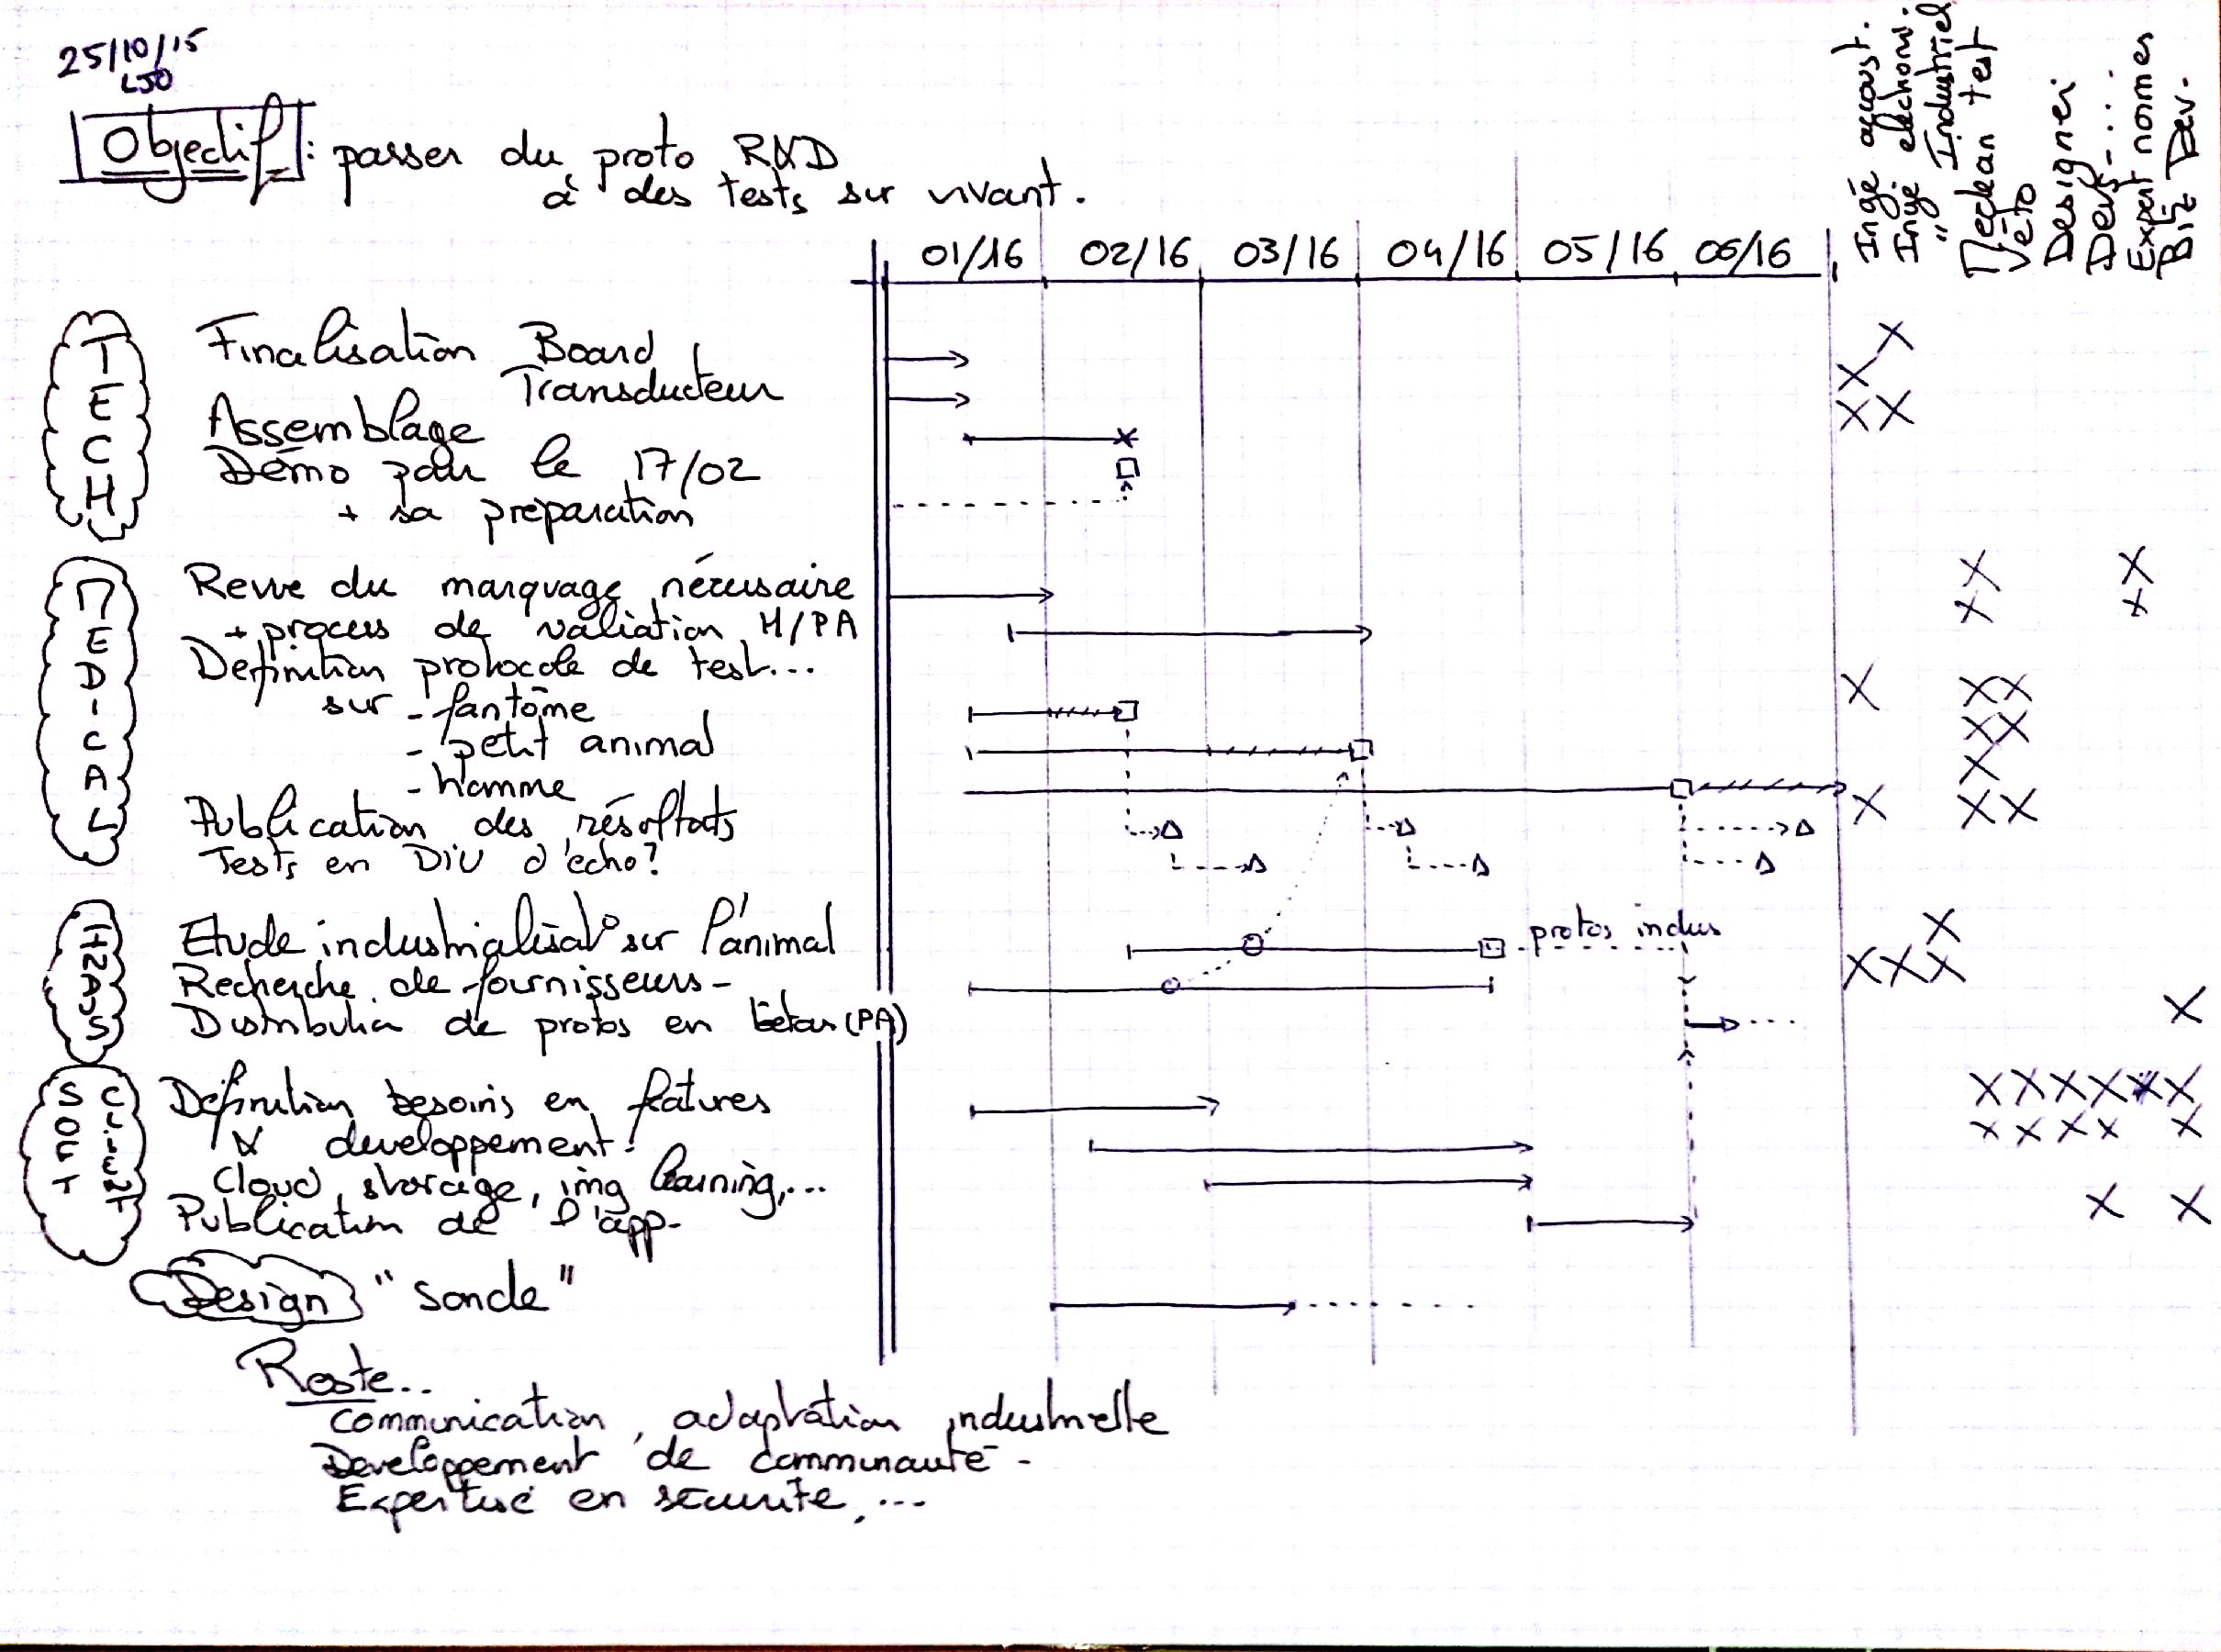 25/10/15
LJO
Objectif : passer du proto R&D
à des tests sur vivant.
Ingé acoust.
Ingé electroni.
" Industriel
Medecan test
Véto
Designer
Devs-....
Expert normes
Biz Dev.
01/16 02/16 03/16 04/16 05/16 06/16
TECH
Finalisation Board
Transducteur
Assemblage
Démo pour le 17/02
+ sa préparation
MEDICAL
Revue du marquage nécessaire
+ process de valiation H/PA
Definition protocole de test...
sur - fantôme
- petit animal
- homme
Publication des résultats
Tests en DiU d'écho?
INDUS
Etude industrialisat° sur l'animal
protos indus
Recherche de fournisseurs -
Distribution de protos en bétas (PA)
SOFT CLiENT
Définition besoins en features
& developpement.
Cloud, storage, img learning,...
Publication de l'app-
Design "sonde"
Reste..
Communication, adaptation industrielle
Developpement de communauté -
Expertise en sécurité, ...